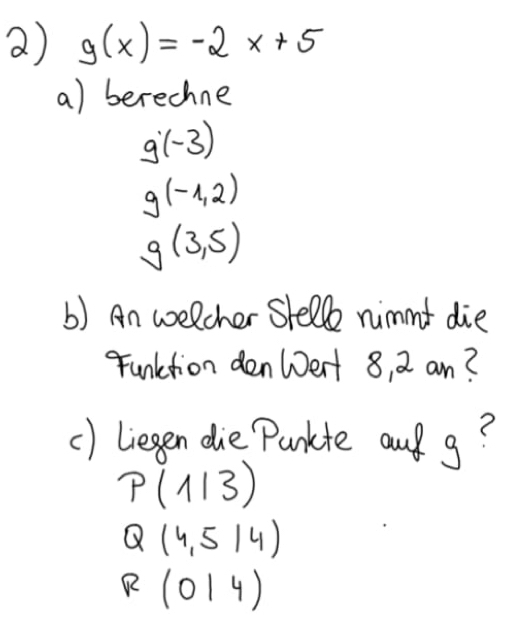 2) g(x) = -2 x + 5
a) berechne
g(-3)
g(-1,2)
g(3,5)
b) An welcher Stelle nimmt die
Funktion den Wert 8,2 an?
c) Liegen die Punkte auf g?
P(1|3)
Q (4,5|4)
R (0|4)